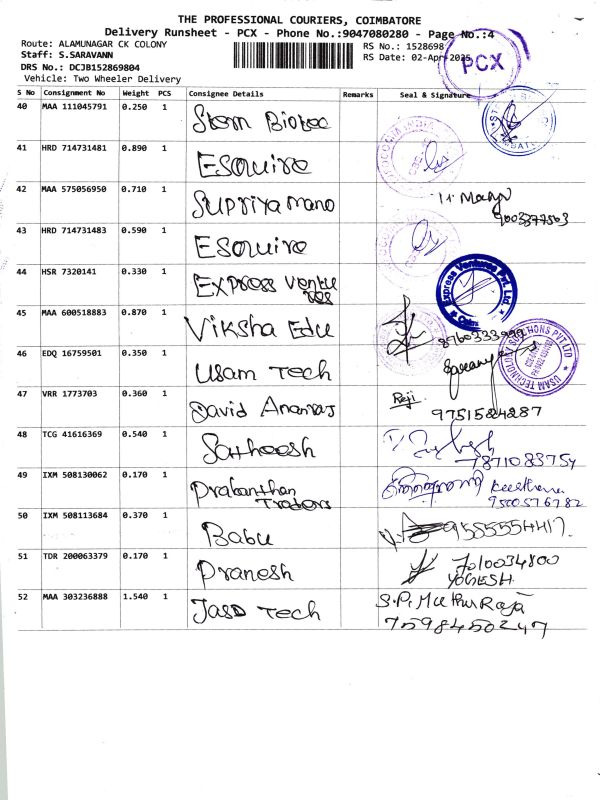 THE PROFESSIONAL COURIERS, COIMBATORE
Delivery Runsheet - PCX - Phone No.:9047080280 - Page No.:4
Route: ALAMUNAGAR CK COLONY
RS No.: 1528698
Staff: S.SARAVANN
RS Date: 02-Apr-2025
DRS No.: DCJB152869804
Vehicle: Two Wheeler Delivery
PCX
S No Consignment No Weight PCS Consignee Details Remarks Seal & Signature
40 MAA 111045791 0.250 1 Stem Biotec
41 HRD 714731481 0.890 1 Esquire
42 MAA 575056950 0.710 1 Supriya mano
9003377563
43 HRD 714731483 0.590 1 Esquire
44 HSR 7320141 0.330 1 Express Ventures
Express Ventures Pvt. Ltd.
45 MAA 600518883 0.870 1 Viksha Edu
8760333999
46 EDQ 16759501 0.350 1 Usam Tech
USAM TECHNOLOGY SOLUTIONS PVT LTD
47 VRR 1773703 0.360 1 David
Reji
9751524287
48 TCG 41616369 0.540 1 Satheesh
7871083754
49 IXM 508130062 0.170 1 Prabanthan Traders
Keerthana
9500576782
50 IXM 508113684 0.370 1 Babu
51 TDR 200063379 0.170 1 Pranesh
7010034800
YOGESH
52 MAA 303236888 1.540 1 Jasd Tech
S.P. Muthu Raja
7598450247